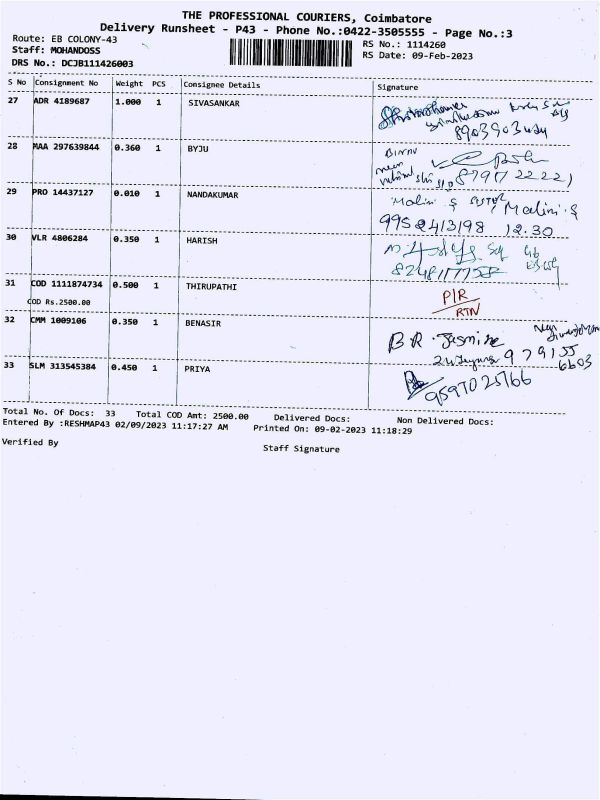 THE PROFESSIONAL COURIERS, Coimbatore
Delivery Runsheet - P43 - Phone No.:0422-3505555 - Page No.:3
Route: EB COLONY-43
RS No.: 1114260
Staff: MOHANDOSS
RS Date: 09-Feb-2023
DRS No.: DCJB111426003
S No Consignment No Weight PCS Consignee Details Signature
27 ADR 4189687 1.000 1 SIVASANKAR
28 MAA 297639844 0.360 1 BYJU
29 PRO 14437127 0.010 1 NANDAKUMAR
Malini S Malini. S
12.30
30 VLR 4806284 0.350 1 HARISH
31 COD 1111874734 0.500 1 THIRUPATHI
COD Rs.2500.00
P/R
RTN
32 CMM 1009106 0.350 1 BENASIR
B R. Jasmine
33 SLM 313545384 0.450 1 PRIYA
9597025766
Total No. Of Docs: 33 Total COD Amt: 2500.00 Delivered Docs: Non Delivered Docs:
Entered By :RESHMAP43 02/09/2023 11:17:27 AM Printed On: 09-02-2023 11:18:29
Verified By
Staff Signature